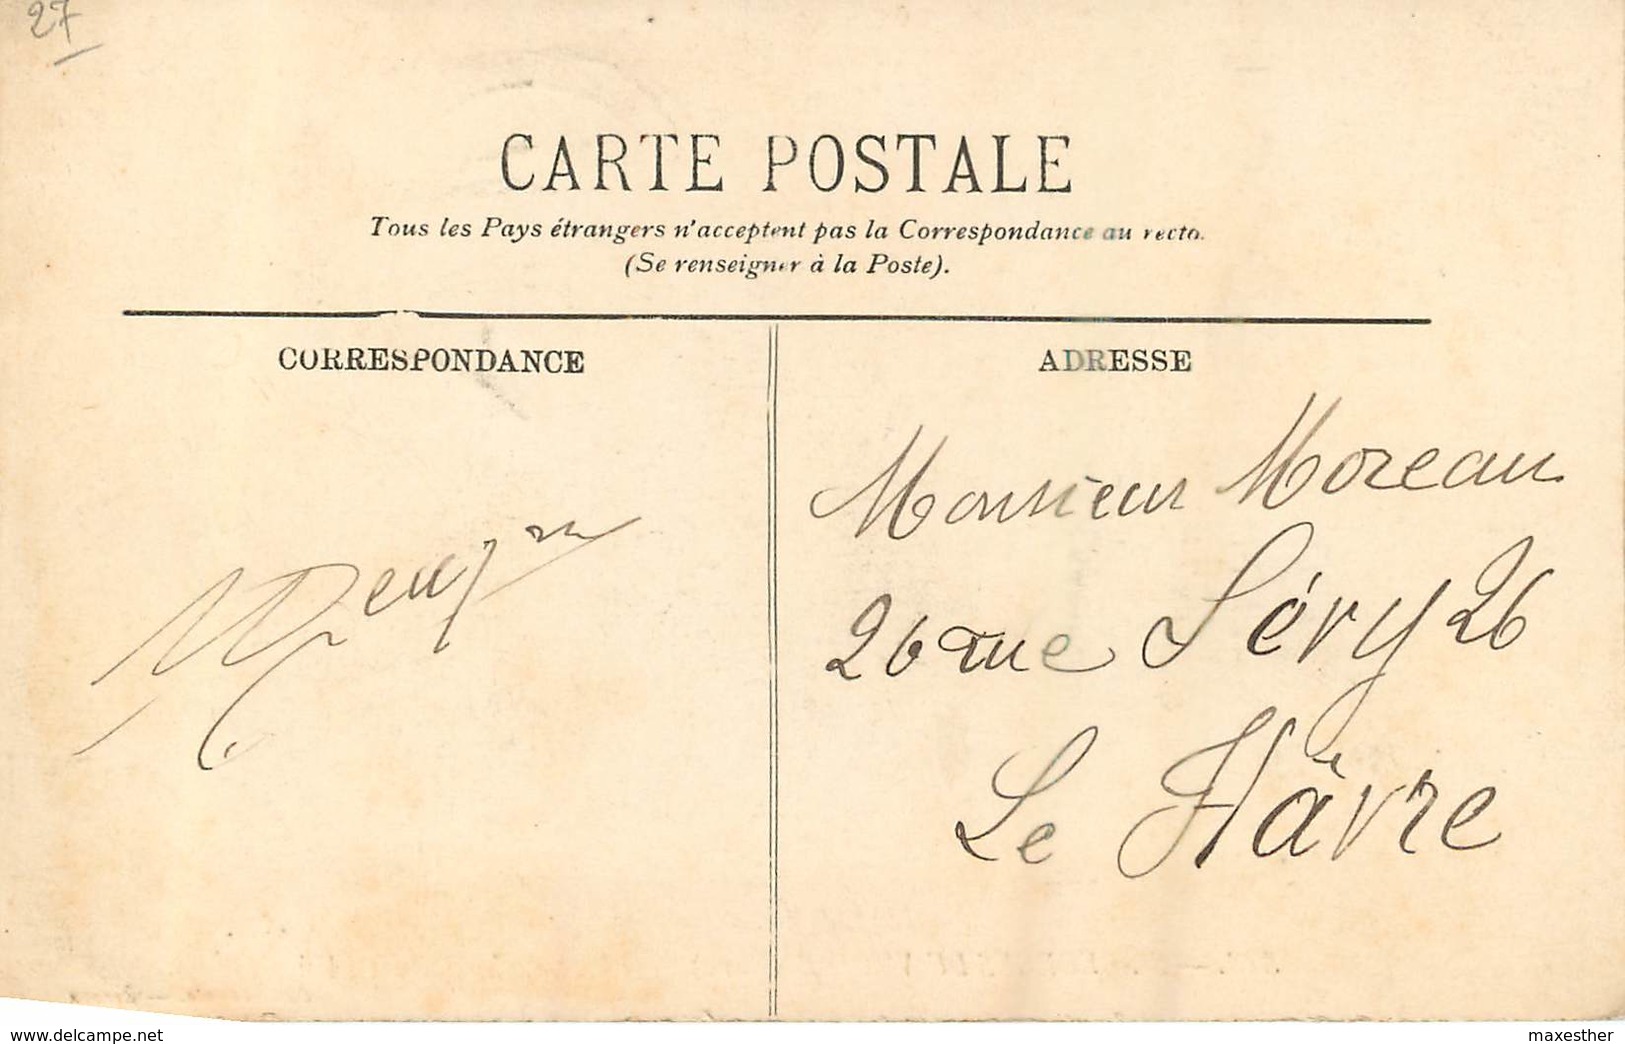 27
CARTE POSTALE
Tous les Pays étrangers n'acceptent pas la Correspondance au recto.
(Se renseigner à la Poste).
CORRESPONDANCE
ADRESSE
Monsieur Moreau
26 rue Séry 26
Le Hâvre
www.delcampe.net
maxesther